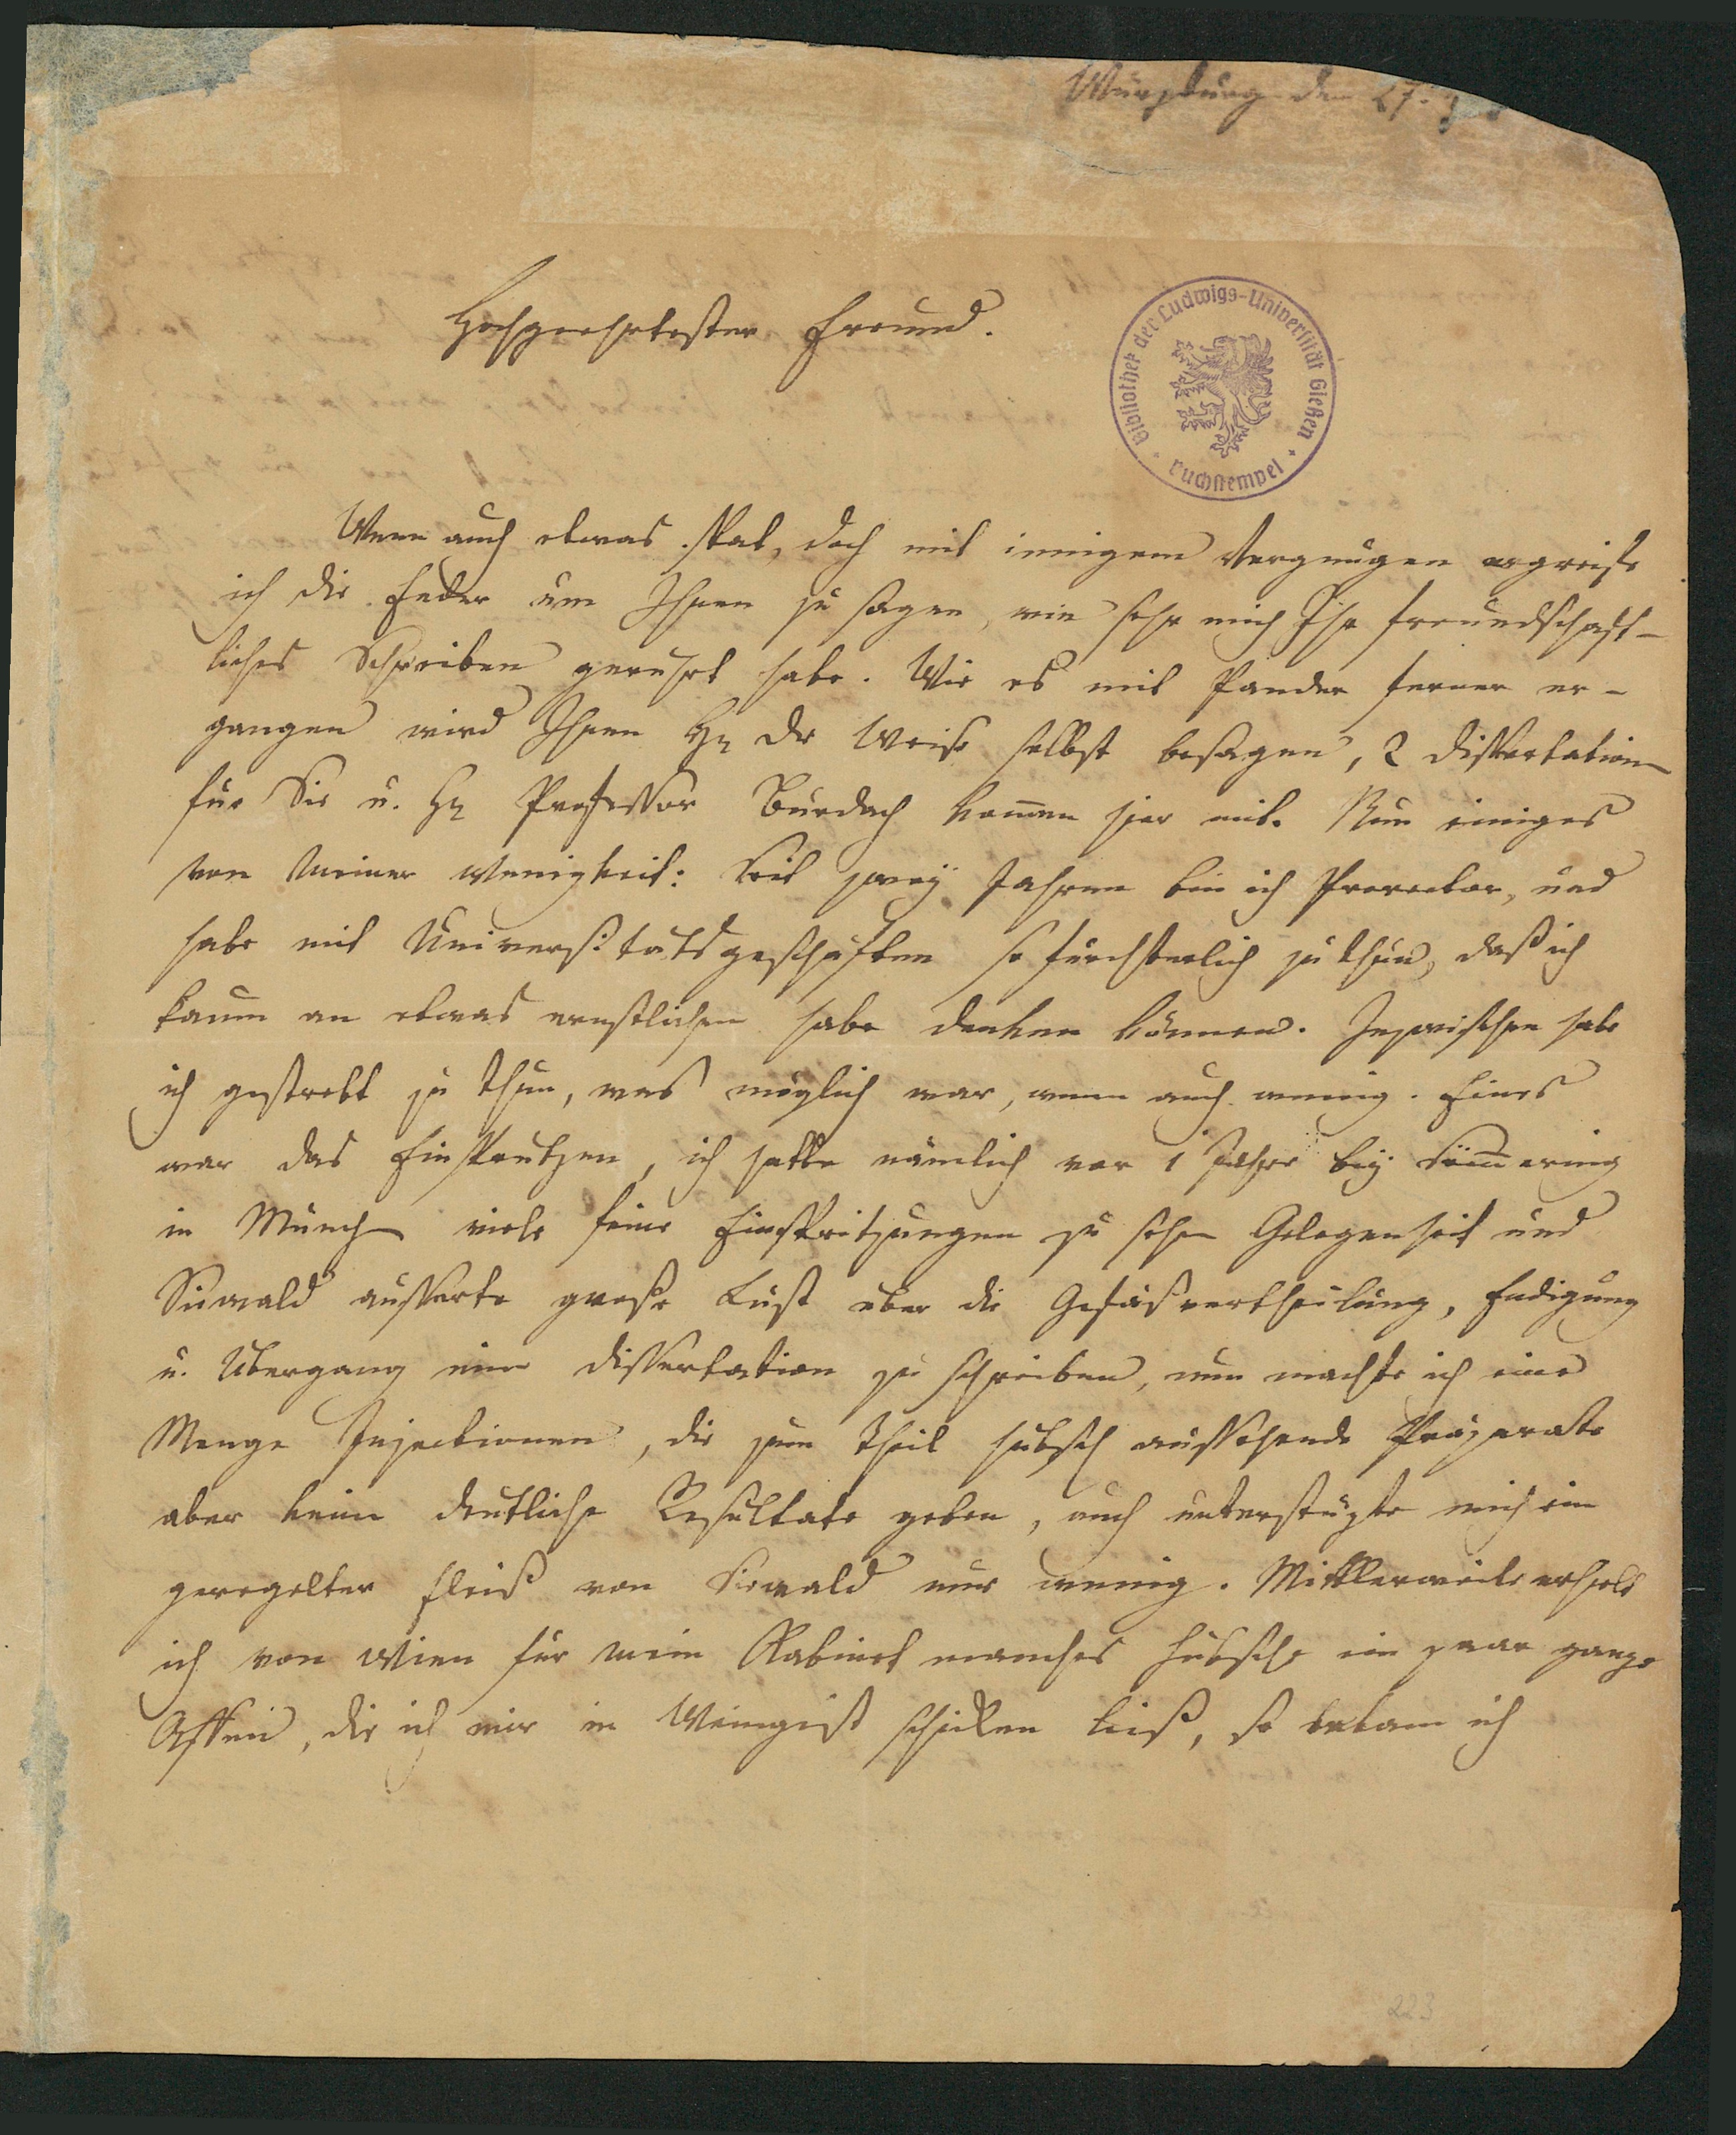 Würzburg den 27.
Hochgeehrtester Freund.
Bibliothek der Ludwigs-Universität Gießen
Buchstempel
Wenn auch etwas spat, doch mit innigem Vergnügen ergreife
ich die Feder um Ihnen zu sagen, wie sehr mich Ihr freundschaft-
liches Schreiben gerührt habe. Wie es mit Pander ferner er-
gangen wird Ihnen Hr Dr Weise selbst besagen, 2 Dissertation
für Sie u. Hr Professor Burdach kom̅en hier mit. Nun einiges
von Meiner Wenigkeit: Seit zwey Jahren bin ich Prorector, und
habe mit Universitätsgeschäften so fürchterlich zu thun, daß ich
kaum an etwas ernstliches habe denken können. Inzwischen habe
ich gestrebt zu thun, was möglich war, wenn auch wenig. Eines
war das Einspritzen, ich hatte nämlich vor 1 Jahre bey Söm̅ering
in Münch viele feine Einspritzungen zu sehen Gelegenheit und
Siewald äusserte große Lust über die Gefäßvertheilung, Endigung
u. Übergang eine Dissertation zu schreiben, nun machte ich eine
Menge Injectionen, die zum Theil hübsch aussehende Präparate
aber keine deutliche Resultate geben, auch unterstüzte mich ein
geregelter Fleiß von Siewald nur wenig. Mittlerweile erhielt
ich von Wien für mein Kabinet manches hübsche ein paar ganze
Affen, die ich mir in Weingeist schicken ließ, so bekam ich
223